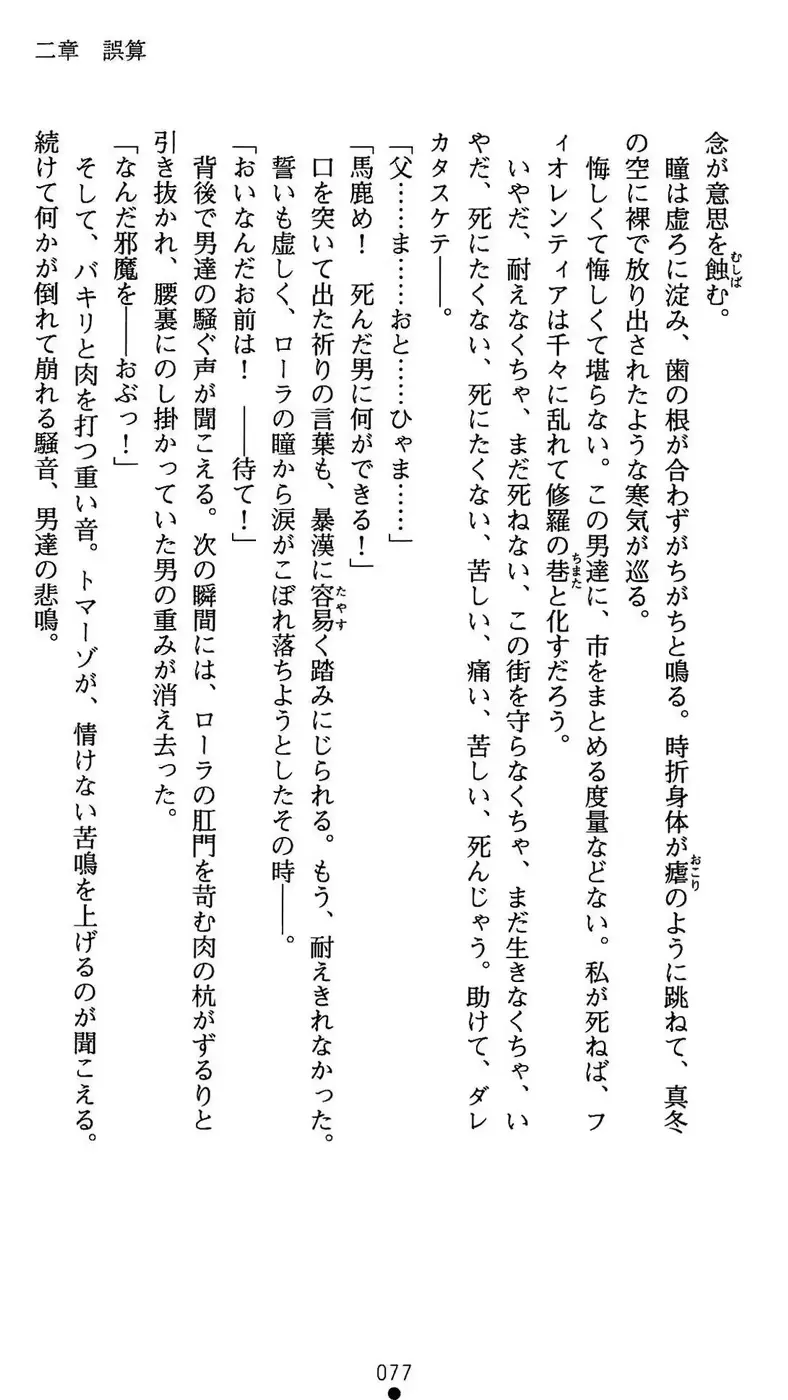 二章　誤算
念が意思を蝕む。
むしば
　瞳は虚ろに淀み、歯の根が合わずがちがちと鳴る。時折身体が瘧のように跳ねて、真冬
おこり
の空に裸で放り出されたような寒気が巡る。
　悔しくて悔しくて堪らない。この男達に、市をまとめる度量などない。私が死ねば、フ
ィオレンティアは千々に乱れて修羅の巷と化すだろう。
ちまた
　いやだ、耐えなくちゃ、まだ死ねない、この街を守らなくちゃ、まだ生きなくちゃ、い
やだ、死にたくない、死にたくない、苦しい、痛い、苦しい、死んじゃう。助けて、ダレ
カタスケテ――。
「父……ま……おと……ひゃま……」
「馬鹿め！　死んだ男に何ができる！」
　口を突いて出た祈りの言葉も、暴漢に容易く踏みにじられる。もう、耐えきれなかった。
たやす
　誓いも虚しく、ローラの瞳から涙がこぼれ落ちようとしたその時――。
「おいなんだお前は！　――待て！」
　背後で男達の騒ぐ声が聞こえる。次の瞬間には、ローラの肛門を苛む肉の杭がずるりと
引き抜かれ、腰裏にのし掛かっていた男の重みが消え去った。
「なんだ邪魔を――おぶっ！」
　そして、バキリと肉を打つ重い音。トマーゾが、情けない苦鳴を上げるのが聞こえる。
続けて何かが倒れて崩れる騒音、男達の悲鳴。
077